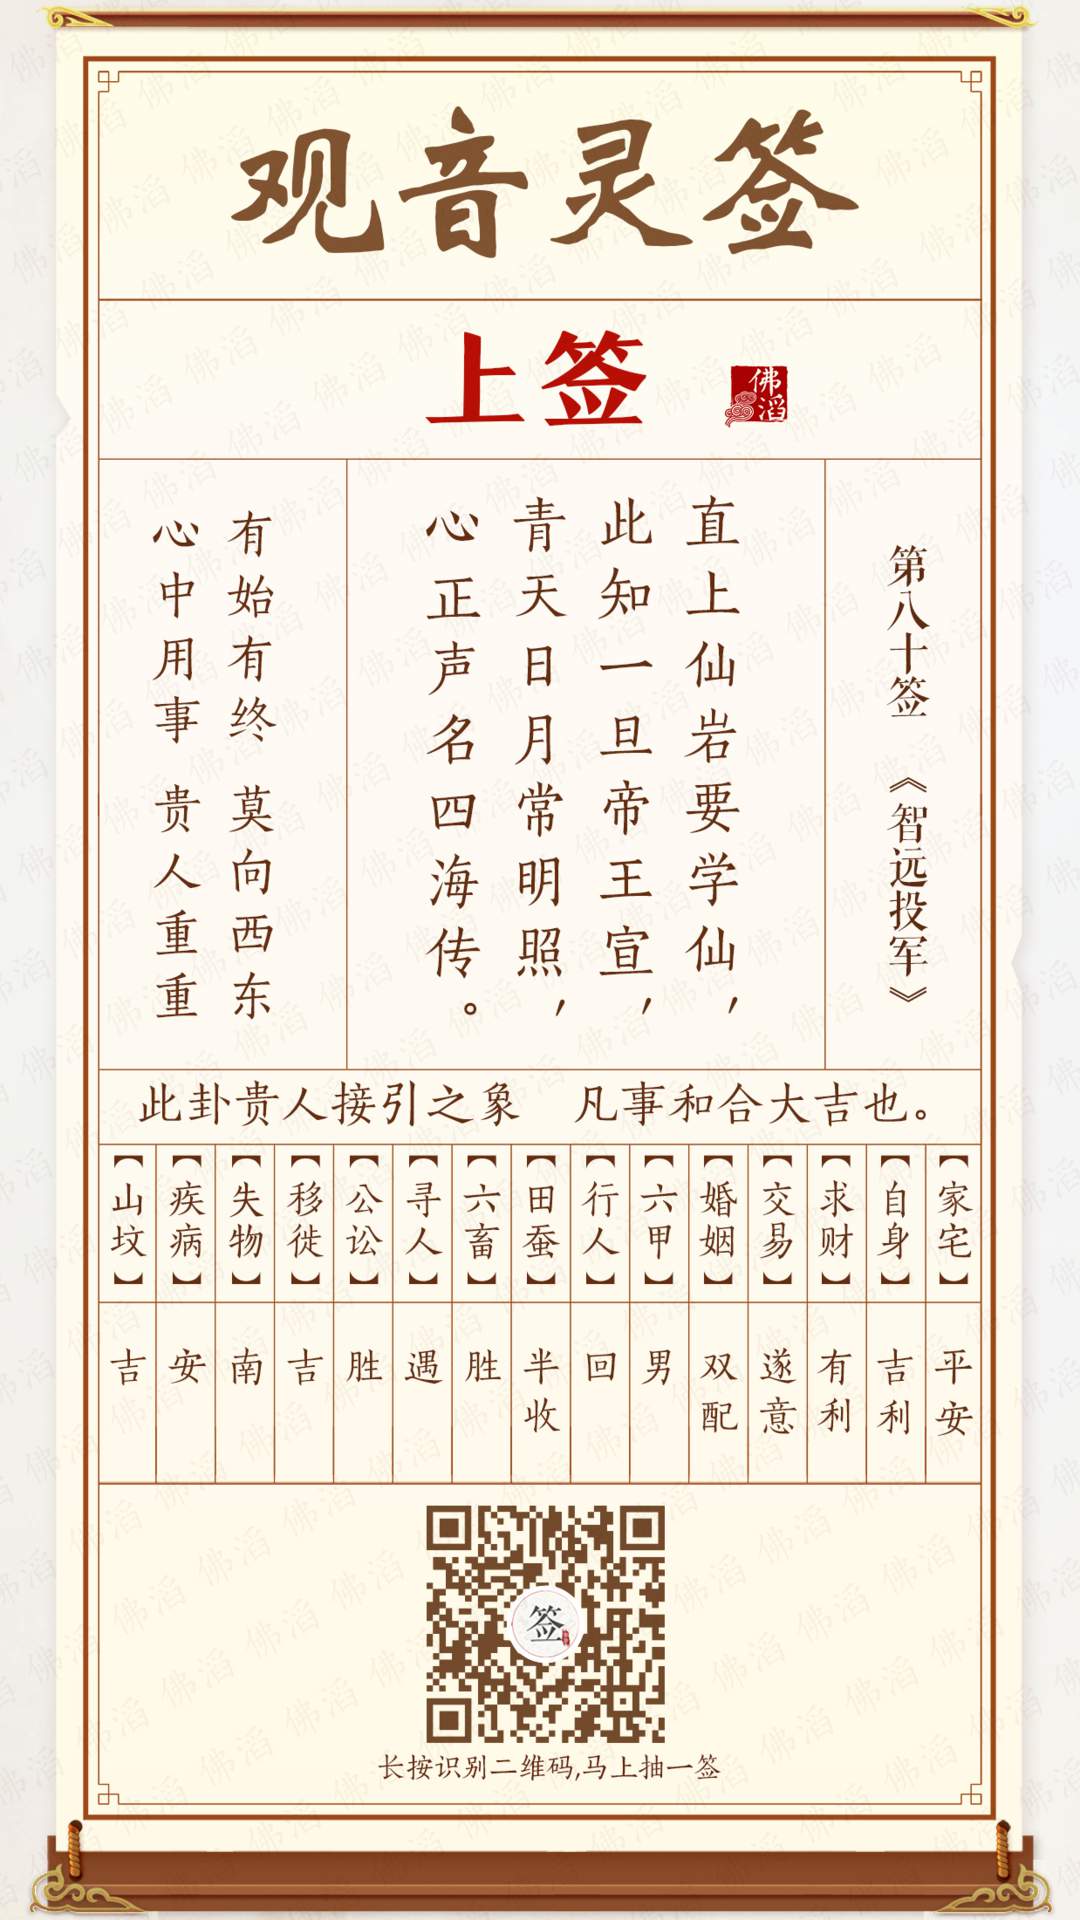 观音灵签
上签
佛滔
第八十签 《智远投军》
直上仙岩要学仙，
此知一旦帝王宣，
青天日月常明照，
心正声名四海传。
有始有终 莫向西东
心中用事 贵人重重
此卦贵人接引之象 凡事和合大吉也。
【家宅】 平安
【自身】 吉利
【求财】 有利
【交易】 遂意
【婚姻】 双配
【六甲】 男
【行人】 回
【田蚕】 半收
【六畜】 胜
【寻人】 遇
【公讼】 胜
【移徙】 吉
【失物】 南
【疾病】 安
【山坟】 吉
签
长按识别二维码,马上抽一签